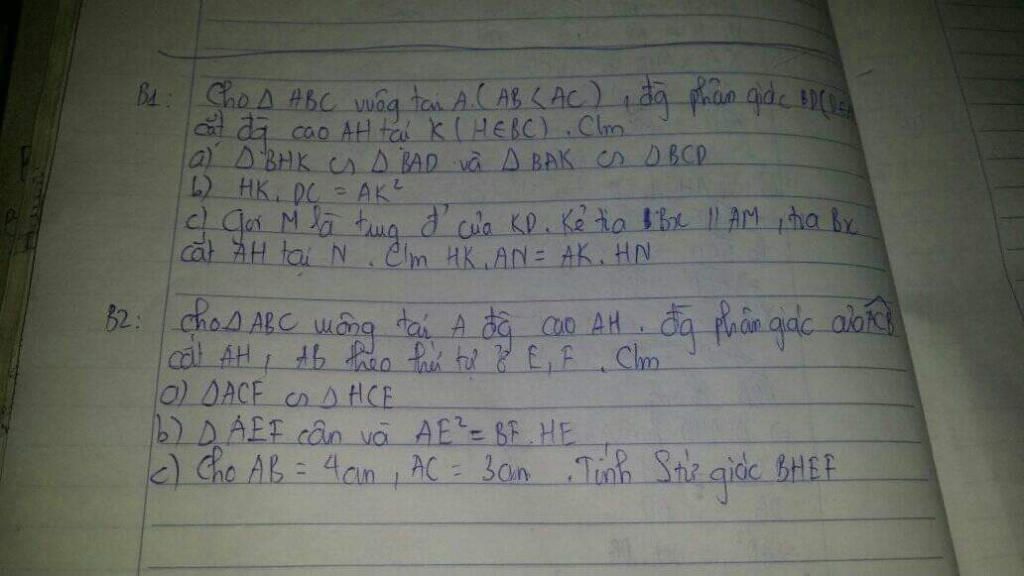 B1: Cho Δ ABC vuông tại A (AB < AC), đg phân giác BD (D∈
cắt đg cao AH tại K (H∈BC). Clm
a) Δ BHK ∽ Δ BAD và Δ BAK ∽ ΔBCD
b) HK. DC = AK²
c) Gọi M là trung đ' của KD. Kẻ tia Bx // AM, tia Bx
cắt AH tại N. Clm HK. AN = AK. HN
B2: Cho Δ ABC vuông tại A đg cao AH. đg phân giác của ACB
cắt AH, AB theo thứ tự ở E, F. Clm
a) ΔACF ∽ Δ HCE
b) Δ AEF cân và AE² = BF. HE
c) Cho AB = 4cm, AC = 3cm. Tính S tứ giác BHEF